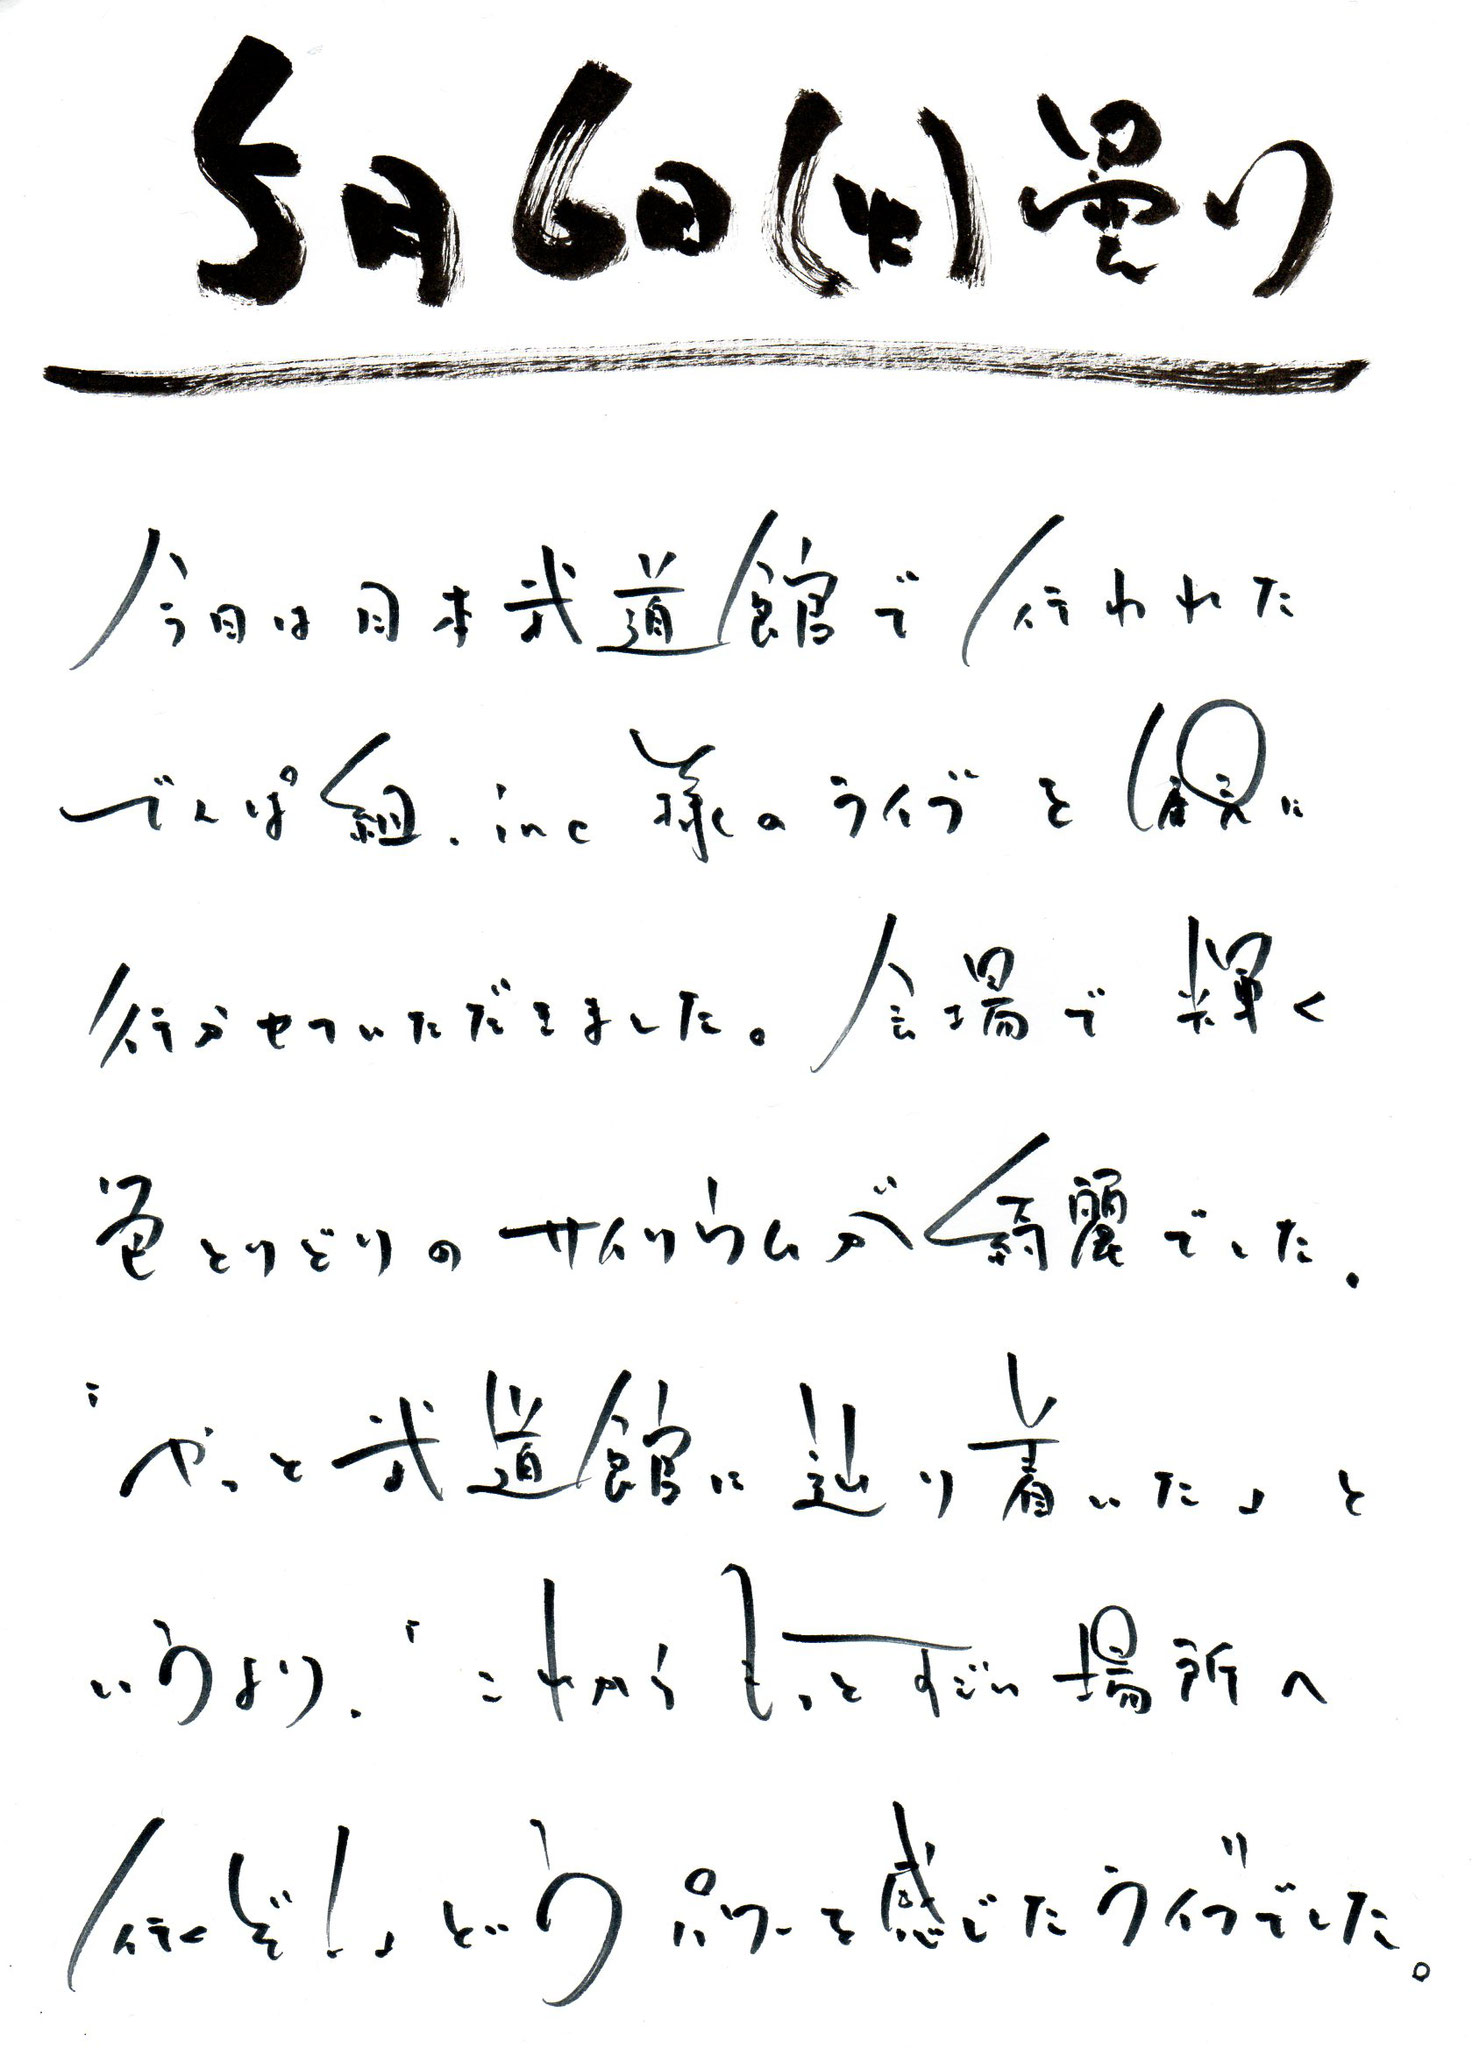 5月6日(火)曇り
今日は日本武道館で行われた
でんぱ組.inc様のライブを観に
行かせていただきました。会場で輝く
色とりどりのサイリウムが綺麗でした.
「やっと武道館に辿り着いた」と
いうより.「これからもっとすごい場所へ
行くぞ!」というパワーを感じたライブでした。